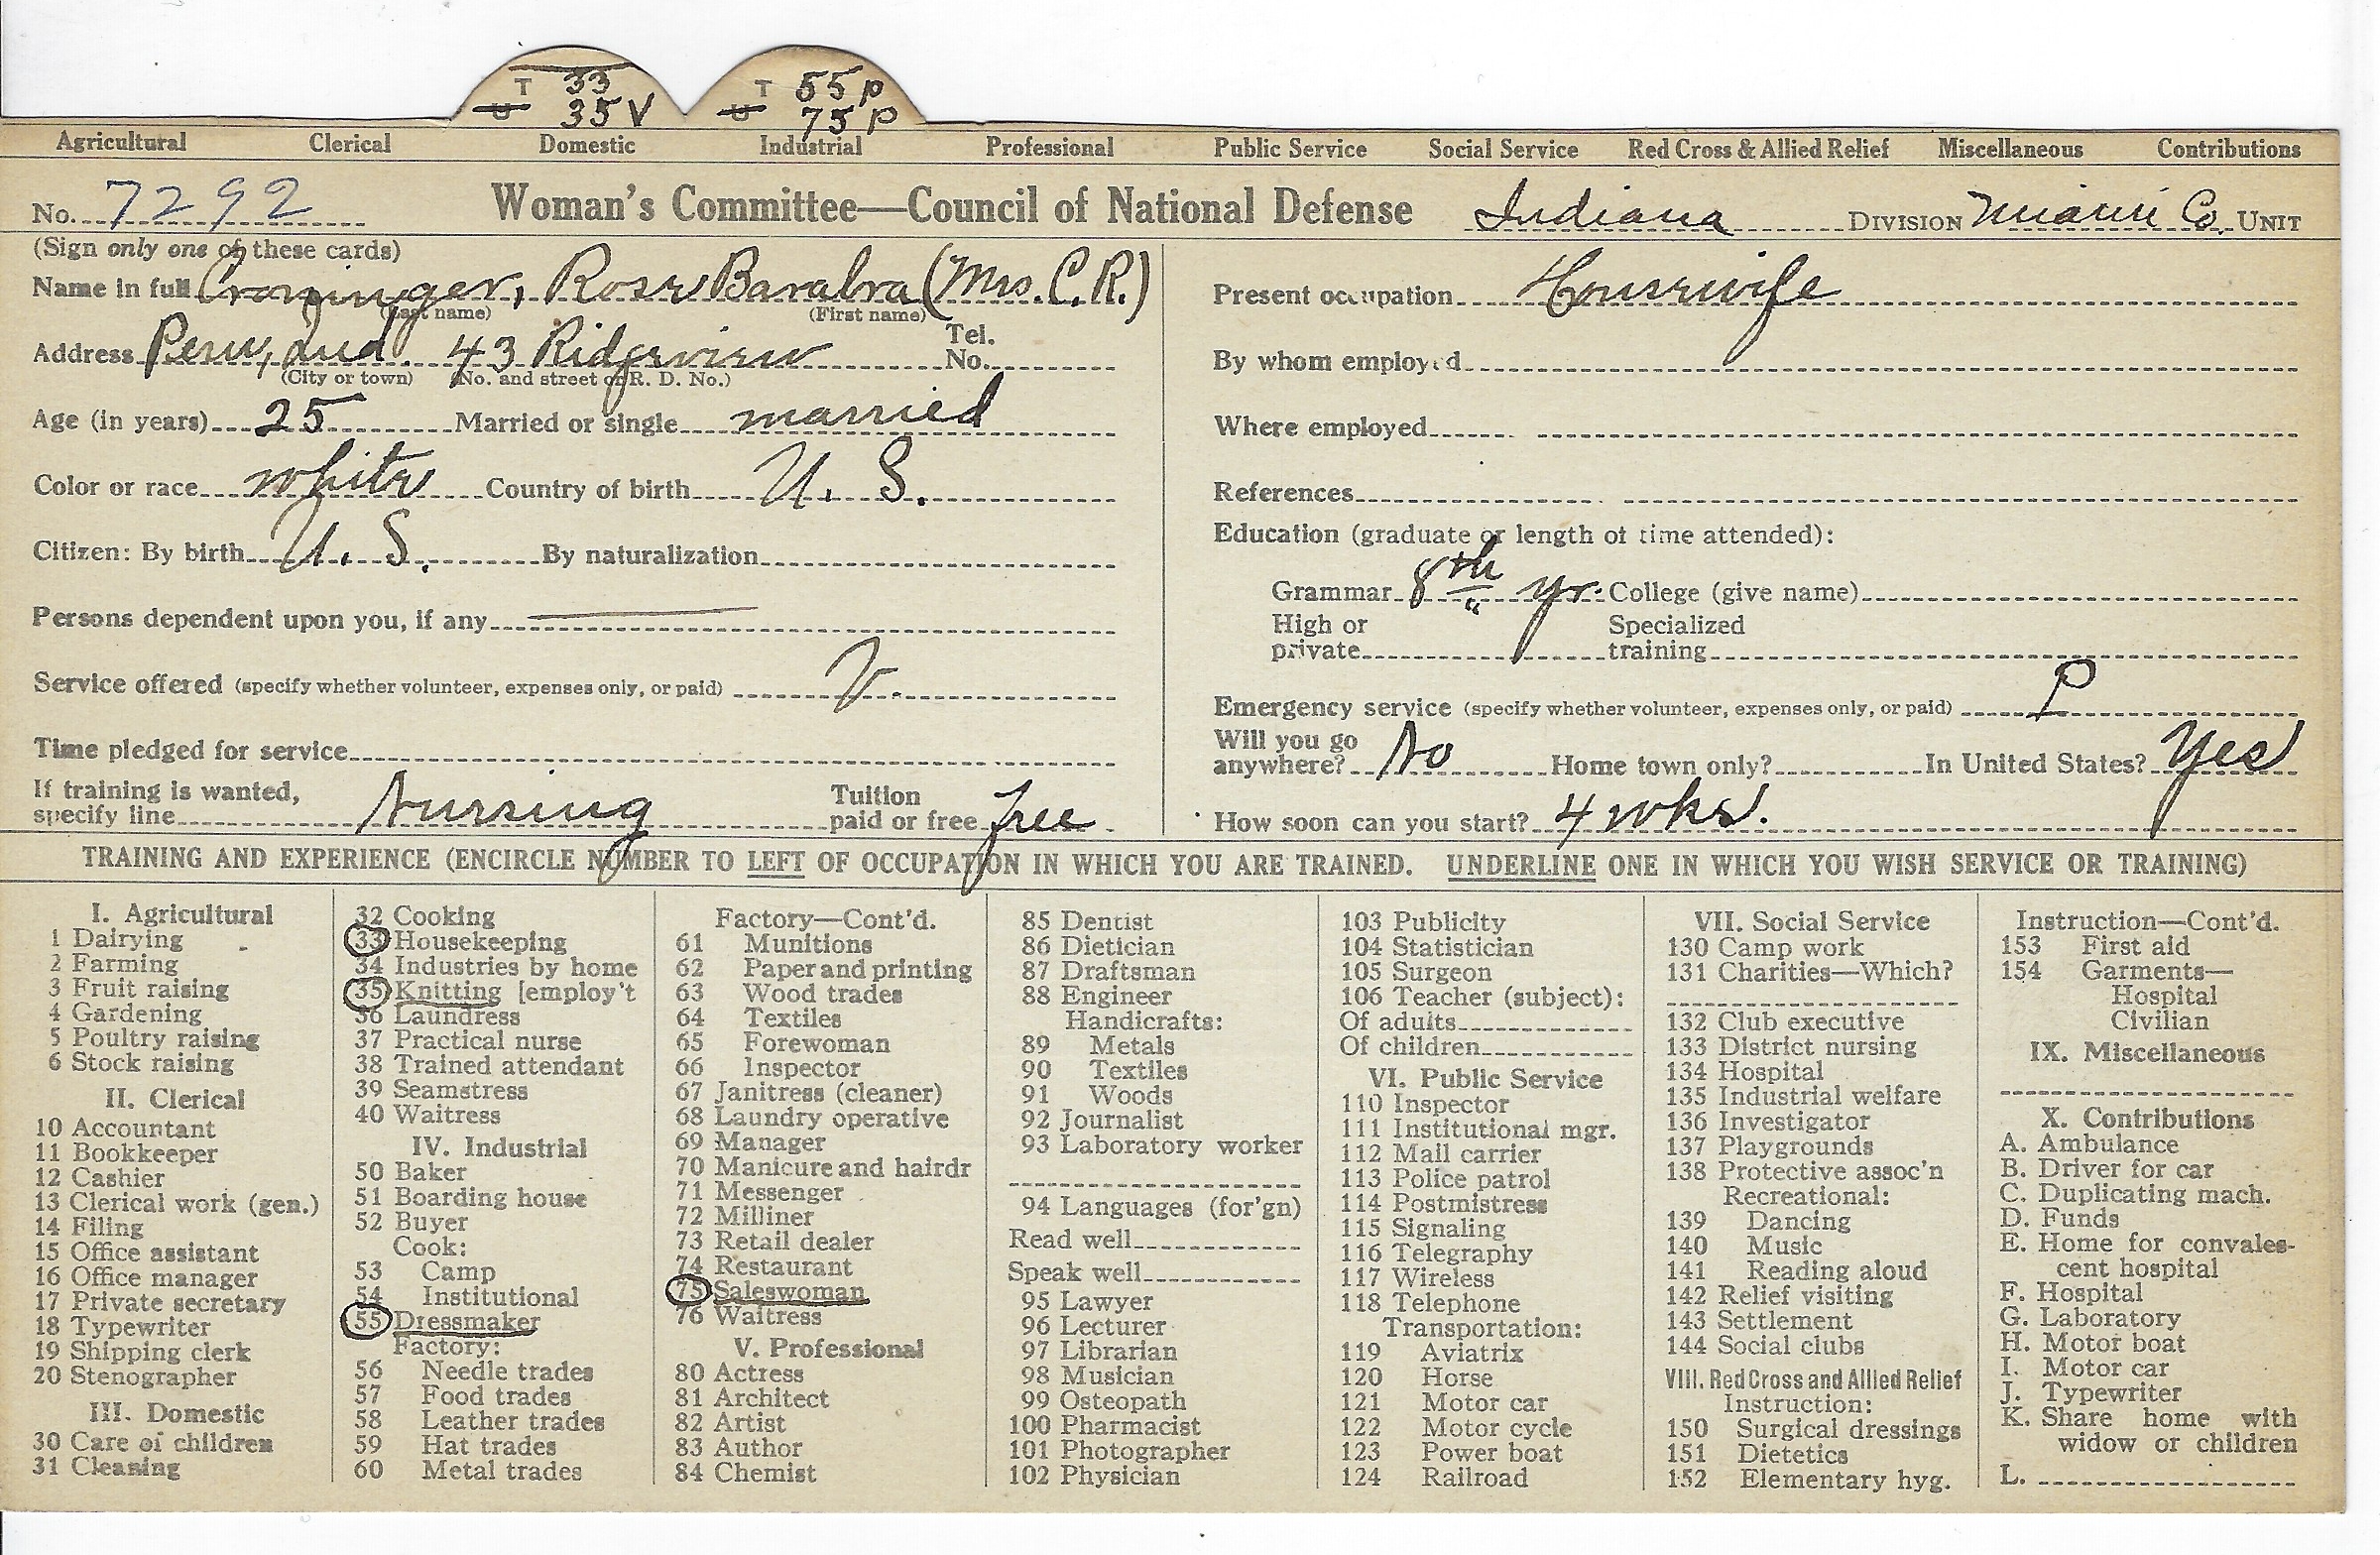 T 33 T 55 p
U 35 V U 75 p
Agricultural Clerical Domestic Industrial Professional Public Service Social Service Red Cross & Allied Relief Miscellaneous Contributions
No. 7292 Woman's Committee—Council of National Defense Indiana DIVISION Miami Co. UNIT
(Sign only one of these cards)
Name in full Croninger, Rose Barabra (Mrs. C. R.)
(Last name) (First name)
Address Peru, Ind. 43 Ridgeview Tel. No.
(City or town) (No. and street or R. D. No.)
Age (in years) 25 Married or single married
Color or race white Country of birth U. S.
Citizen: By birth U. S. By naturalization
Persons dependent upon you, if any —
Service offered (specify whether volunteer, expenses only, or paid) V.
Time pledged for service
If training is wanted, specify line Nursing Tuition paid or free free
Present occupation Housewife
By whom employed
Where employed
References
Education (graduate or length of time attended):
Grammar 8th yr. College (give name)
High or private Specialized training
Emergency service (specify whether volunteer, expenses only, or paid) P
Will you go anywhere? No Home town only? In United States? Yes
How soon can you start? 4 wks.
TRAINING AND EXPERIENCE (ENCIRCLE NUMBER TO LEFT OF OCCUPATION IN WHICH YOU ARE TRAINED. UNDERLINE ONE IN WHICH YOU WISH SERVICE OR TRAINING)
I. Agricultural
1 Dairying
2 Farming
3 Fruit raising
4 Gardening
5 Poultry raising
6 Stock raising
II. Clerical
10 Accountant
11 Bookkeeper
12 Cashier
13 Clerical work (gen.)
14 Filing
15 Office assistant
16 Office manager
17 Private secretary
18 Typewriter
19 Shipping clerk
20 Stenographer
III. Domestic
30 Care of children
31 Cleaning
32 Cooking
33 Housekeeping
34 Industries by home
35 Knitting [employ't
36 Laundress
37 Practical nurse
38 Trained attendant
39 Seamstress
40 Waitress
IV. Industrial
50 Baker
51 Boarding house
52 Buyer
Cook:
53 Camp
54 Institutional
55 Dressmaker
Factory:
56 Needle trades
57 Food trades
58 Leather trades
59 Hat trades
60 Metal trades
Factory—Cont'd.
61 Munitions
62 Paper and printing
63 Wood trades
64 Textiles
65 Forewoman
66 Inspector
67 Janitress (cleaner)
68 Laundry operative
69 Manager
70 Manicure and hairdr
71 Messenger
72 Milliner
73 Retail dealer
74 Restaurant
75 Saleswoman
76 Waitress
V. Professional
80 Actress
81 Architect
82 Artist
83 Author
84 Chemist
85 Dentist
86 Dietician
87 Draftsman
88 Engineer
Handicrafts:
89 Metals
90 Textiles
91 Woods
92 Journalist
93 Laboratory worker
94 Languages (for'gn)
Read well
Speak well
95 Lawyer
96 Lecturer
97 Librarian
98 Musician
99 Osteopath
100 Pharmacist
101 Photographer
102 Physician
103 Publicity
104 Statistician
105 Surgeon
106 Teacher (subject):
Of adults
Of children
VI. Public Service
110 Inspector
111 Institutional mgr.
112 Mail carrier
113 Police patrol
114 Postmistress
115 Signaling
116 Telegraphy
117 Wireless
118 Telephone
Transportation:
119 Aviatrix
120 Horse
121 Motor car
122 Motor cycle
123 Power boat
124 Railroad
VII. Social Service
130 Camp work
131 Charities—Which?
132 Club executive
133 District nursing
134 Hospital
135 Industrial welfare
136 Investigator
137 Playgrounds
138 Protective assoc'n
Recreational:
139 Dancing
140 Music
141 Reading aloud
142 Relief visiting
143 Settlement
144 Social clubs
VIII. Red Cross and Allied Relief
Instruction:
150 Surgical dressings
151 Dietetics
152 Elementary hyg.
Instruction—Cont'd.
153 First aid
154 Garments—
Hospital
Civilian
IX. Miscellaneous
X. Contributions
A. Ambulance
B. Driver for car
C. Duplicating mach.
D. Funds
E. Home for convales-
cent hospital
F. Hospital
G. Laboratory
H. Motor boat
I. Motor car
J. Typewriter
K. Share home with
widow or children
L.